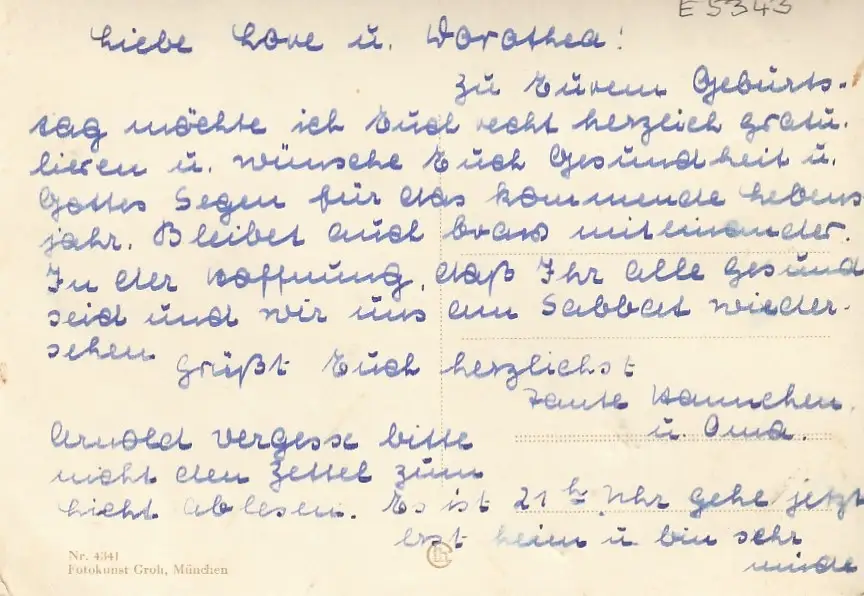 E 5343
Liebe Lore u. Dorothea!
Zu Eurem Geburts-
tag möchte ich Euch recht herzlich gratu-
lieren u. wünsche Euch Gesundheit u.
Gottes Segen für das kommende Lebens
jahr. Bleibet auch brav miteinander.
In der Hoffnung, daß Ihr alle gesund
seid und wir uns am Sabbat wieder-
sehen
grüßt Euch herzlichst
Tante Hannchen
u. Oma.
Arnold vergesse bitte
nicht den Zettel zum
Licht ablesen. Es ist 21 h Uhr gehe jetzt
erst heim u bin sehr
müde
Nr. 4341
Fotokunst Groh, München